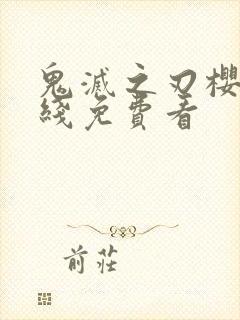 鬼滅之刃櫻
綫免費看
前莊